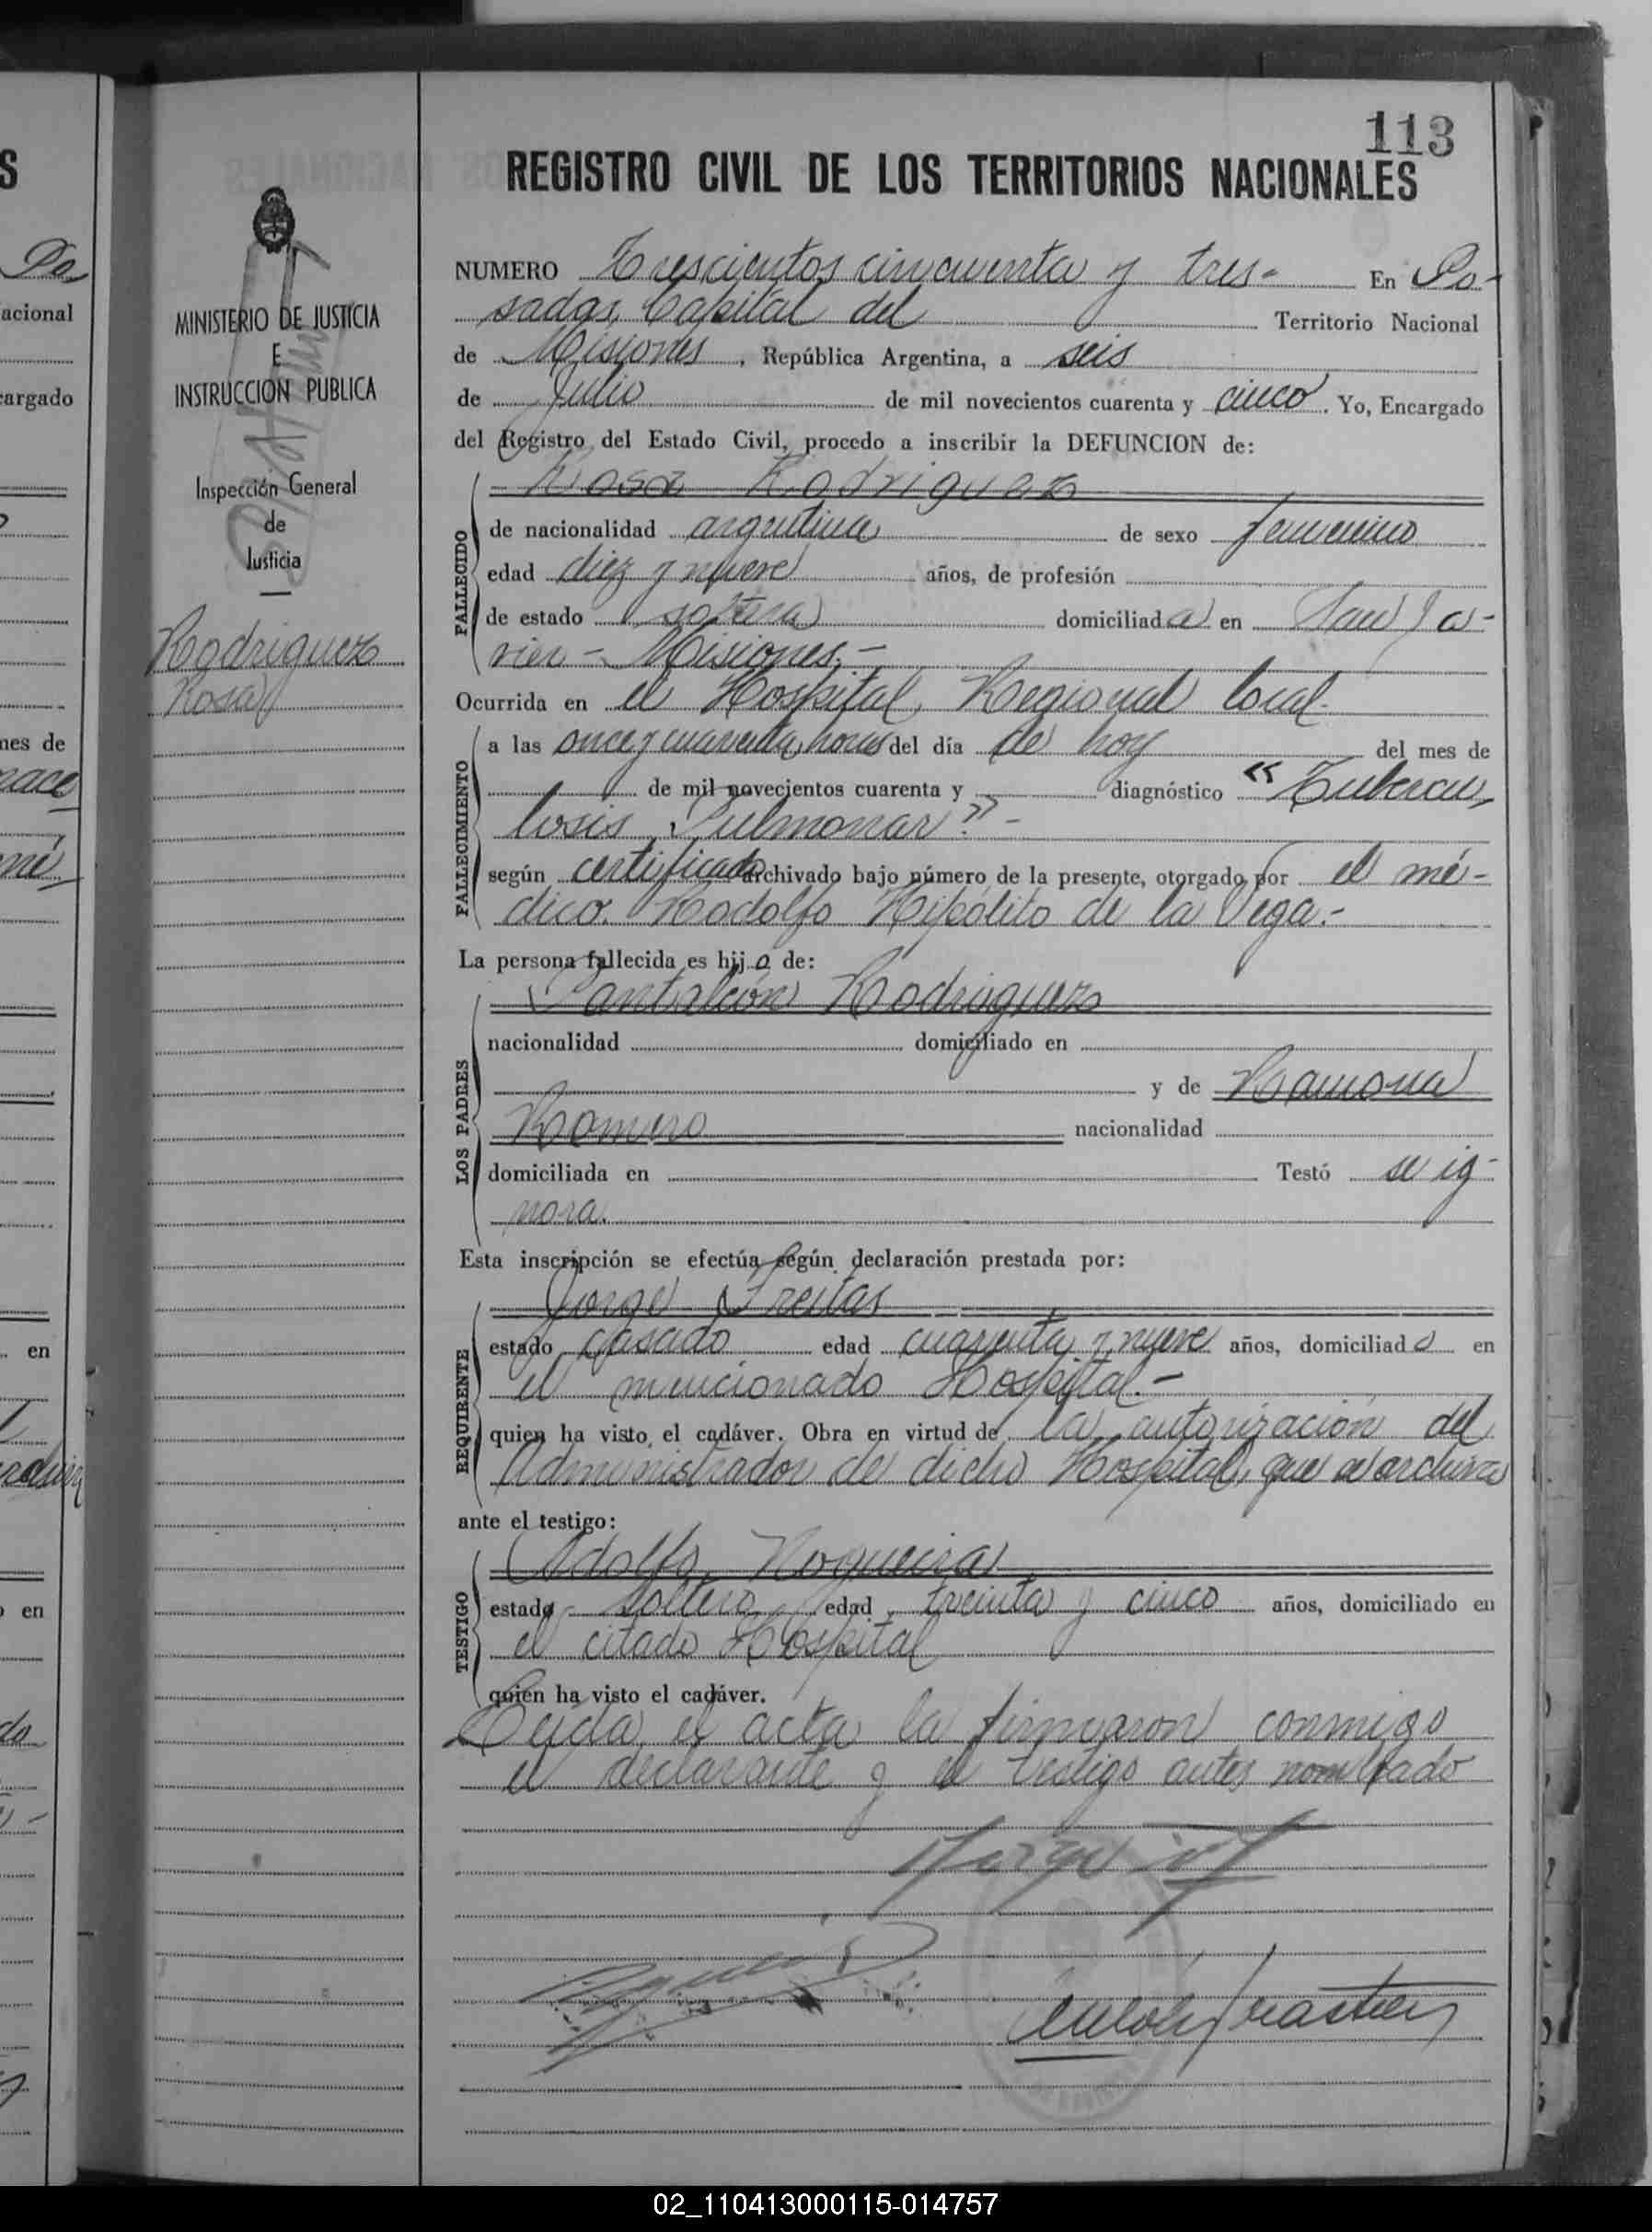 113
REGISTRO CIVIL DE LOS TERRITORIOS NACIONALES
NUMERO Trescientos cincuenta y tres- En Po-
sadas, Capital del Territorio Nacional
de Misiones, República Argentina, a seis
de Julio de mil novecientos cuarenta y cinco. Yo, Encargado
del Registro del Estado Civil, procedo a inscribir la DEFUNCION de:
Rosa Rodriguez
FALLECIDO
de nacionalidad argentina de sexo femenino
edad diez y nueve años, de profesión
de estado soltera domiciliada en San Ja-
vier - Misiones.-
Ocurrida en el Hospital Regional local-
FALLECIMIENTO
a las once y cuarenta horas del día de hoy del mes de
de mil novecientos cuarenta y diagnóstico "Tubercu-
losis Pulmonar".-
según certificado archivado bajo número de la presente, otorgado por el mé-
dico. Rodolfo Hipólito de la Vega.-
La persona fallecida es hija de:
LOS PADRES
Pantaleón Rodriguez
nacionalidad domiciliado en
y de Ramona
Romero nacionalidad
domiciliada en Testó se ig-
nora.
Esta inscripción se efectúa según declaración prestada por:
REQUIRENTE
Jorge Freitas
estado casado edad cuarenta y nueve años, domiciliado en
el mencionado Hospital.-
quien ha visto el cadáver. Obra en virtud de la autorización del
Administrador de dicho Hospital, que se archiva
ante el testigo:
TESTIGO
Adolfo Nogueira
estado soltero edad treinta y cinco años, domiciliado en
el citado Hospital
quien ha visto el cadáver.
Leida el acta la firmaron conmigo
el declarante y el testigo antes nombrado
MINISTERIO DE JUSTICIA
E
INSTRUCCION PUBLICA
Inspección General
de
Justicia
Rodriguez
Rosa
S
Po
acional
argado
mes de
mé-
en
en
02_110413000115-014757